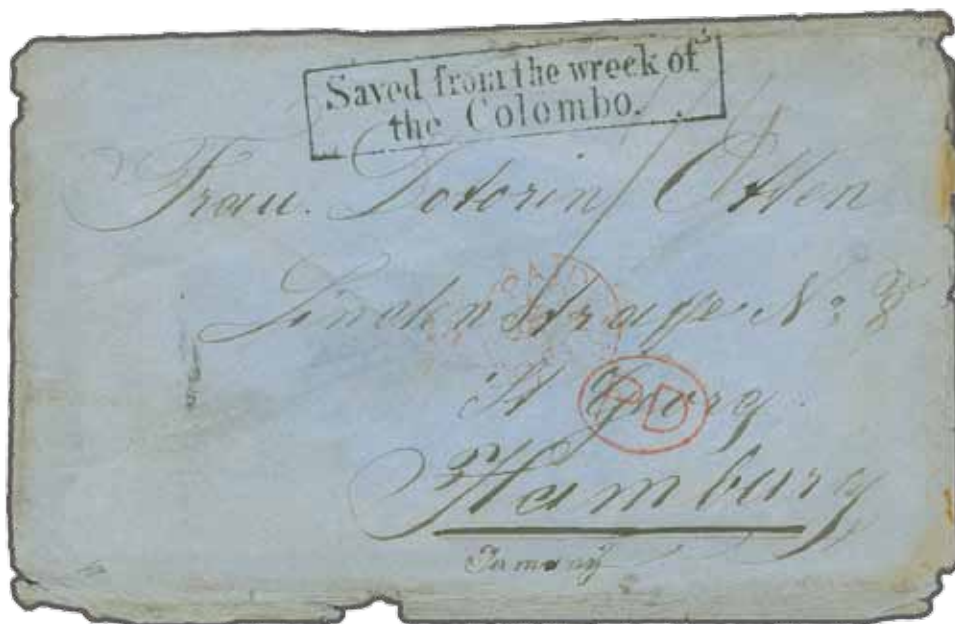 Saved from the wreck of
the Colombo.
Frau. Dotorin Otten
Linden Strasse No: 8
St Georg
PD
Hamburg
Germany